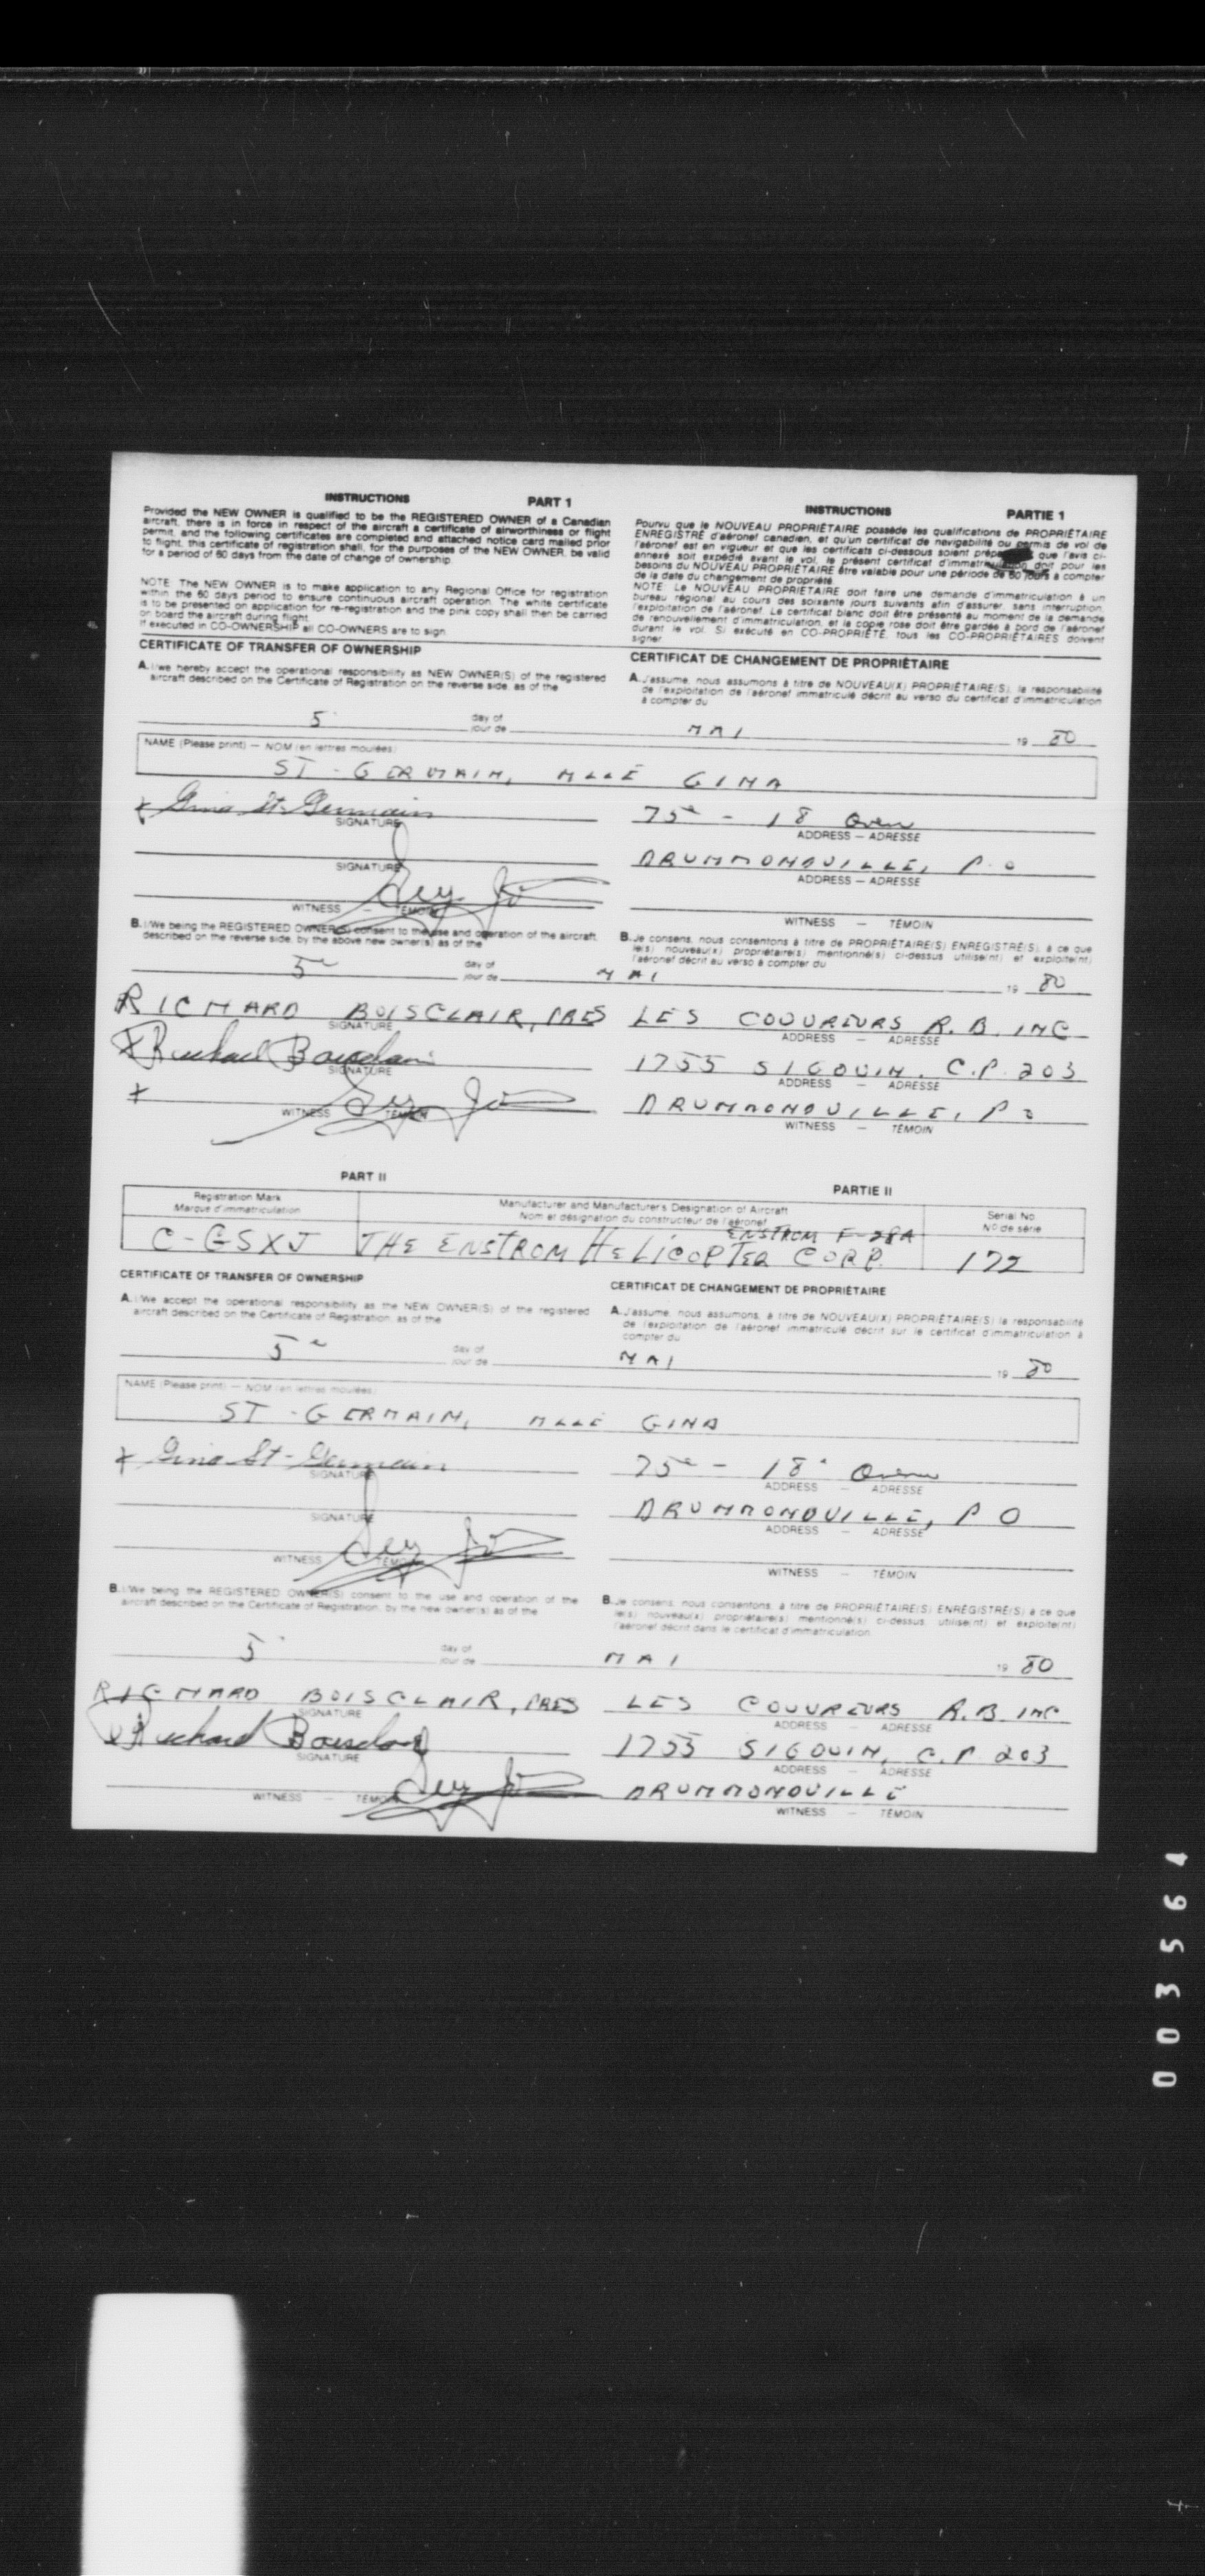 INSTRUCTIONS PART 1
Provided the NEW OWNER is qualified to be the REGISTERED OWNER of a Canadian
aircraft, there is in force in respect of the aircraft a certificate of airworthiness or flight
permit, and the following certificates are completed and attached notice card mailed prior
to flight, this certificate of registration shall, for the purposes of the NEW OWNER, be valid
for a period of 60 days from the date of change of ownership.
NOTE: The NEW OWNER is to make application to any Regional Office for registration
within the 60 days period to ensure continuous aircraft operation. The white certificate
is to be presented on application for re-registration and the pink copy shall then be carried
on board the aircraft during flight.
If executed in CO-OWNERSHIP all CO-OWNERS are to sign.
INSTRUCTIONS PARTIE 1
Pourvu que le NOUVEAU PROPRIÉTAIRE possède les qualifications de PROPRIÉTAIRE
ENREGISTRÉ d'aéronef canadien, et qu'un certificat de navigabilité ou permis de vol de
l'aéronef est en vigueur et que les certificats ci-dessous soient que l'avis ci-
annexé soit expédié avant le vol, le présent certificat d'immatriculation doit pour les
besoins du NOUVEAU PROPRIÉTAIRE être valable pour une période de 60 jours à compter
de la date du changement de propriété.
NOTE: Le NOUVEAU PROPRIÉTAIRE doit faire une demande d'immatriculation à un
bureau régional au cours des soixante jours suivants afin d'assurer, sans interruption,
l'exploitation de l'aéronef. Le certificat blanc doit être présenté au moment de la demande
de renouvellement d'immatriculation, et la copie rose doit être gardée à bord de l'aéronef
durant le vol. Si exécuté en CO-PROPRIÉTÉ, tous les CO-PROPRIÉTAIRES doivent
signer
CERTIFICATE OF TRANSFER OF OWNERSHIP
CERTIFICAT DE CHANGEMENT DE PROPRIÉTAIRE
A. I/we hereby accept the operational responsibility as NEW OWNER(S) of the registered
aircraft described on the Certificate of Registration on the reverse side, as of the
A. J'assume, nous assumons à titre de NOUVEAU(X) PROPRIÉTAIRE(S), la responsabilité
de l'exploitation de l'aéronef immatriculé décrit au verso du certificat d'immatriculation
à compter du
5 day of MAI 19 80
jour de
NAME (Please print) — NOM (en lettres moulées)
ST-GERMAIN, MLLE GINA
x Gina St-Germain 75e - 18 Aven
SIGNATURE ADDRESS — ADRESSE
DRUMMONDVILLE, P.Q
SIGNATURE ADDRESS — ADRESSE
WITNESS — TÉMOIN WITNESS — TÉMOIN
B. I/We being the REGISTERED OWNER(S) consent to the use and operation of the aircraft,
described on the reverse side, by the above new owner(s) as of the
B. Je consens, nous consentons à titre de PROPRIÉTAIRE(S) ENREGISTRÉ(S), à ce que
le(s) nouveau(x) propriétaire(s) mentionné(s) ci-dessus utilise(nt) et exploite(nt)
l'aéronef décrit au verso à compter du
5e day of MAI 19 80
jour de
RICHARD BOISCLAIR, PRES LES COUVREURS R.B. INC
SIGNATURE ADDRESS — ADRESSE
x Richard Boisclair 1755 SIGOUIN, C.P. 203
SIGNATURE ADDRESS — ADRESSE
x DRUMMONDVILLE, P Q
WITNESS TÉMOIN WITNESS — TÉMOIN
PART II PARTIE II
Registration Mark Manufacturer and Manufacturer's Designation of Aircraft Serial No.
Marque d'immatriculation Nom et désignation du constructeur de l'aéronef No de série
ENSTROM F-28A
C-GSXJ THE ENSTROM HELICOPTER CORP. 172
CERTIFICATE OF TRANSFER OF OWNERSHIP
CERTIFICAT DE CHANGEMENT DE PROPRIÉTAIRE
A. I/We accept the operational responsibility as the NEW OWNER(S) of the registered
aircraft described on the Certificate of Registration, as of the
A. J'assume, nous assumons, à titre de NOUVEAU(X) PROPRIÉTAIRE(S) la responsabilité
de l'exploitation de l'aéronef immatriculé décrit sur le certificat d'immatriculation à
compter du
5e day of MAI 19 80
jour de
NAME (Please print) — NOM (en lettres moulées)
ST-GERMAIN, MLLE GINA
x Gina St-Germain 75e - 18e Avenue
SIGNATURE ADDRESS — ADRESSE
DRUMMONDVILLE, P Q
SIGNATURE ADDRESS — ADRESSE
WITNESS TÉMOIN WITNESS — TÉMOIN
B. I/We being the REGISTERED OWNER(S) consent to the use and operation of the
aircraft described on the Certificate of Registration, by the new owner(s) as of the
B. Je consens, nous consentons, à titre de PROPRIÉTAIRE(S) ENREGISTRÉ(S) à ce que
le(s) nouveau(x) propriétaire(s) mentionné(s) ci-dessus, utilise(nt) et exploite(nt)
l'aéronef décrit dans le certificat d'immatriculation
5 day of MAI 19 80
jour de
RICHARD BOISCLAIR, PRES LES COUVREURS R.B. INC
SIGNATURE ADDRESS — ADRESSE
x Richard Boisclair 1755 SIGOUIN, C.P. 203
SIGNATURE ADDRESS — ADRESSE
DRUMMONDVILLE
WITNESS — TÉMOIN WITNESS — TÉMOIN
003564